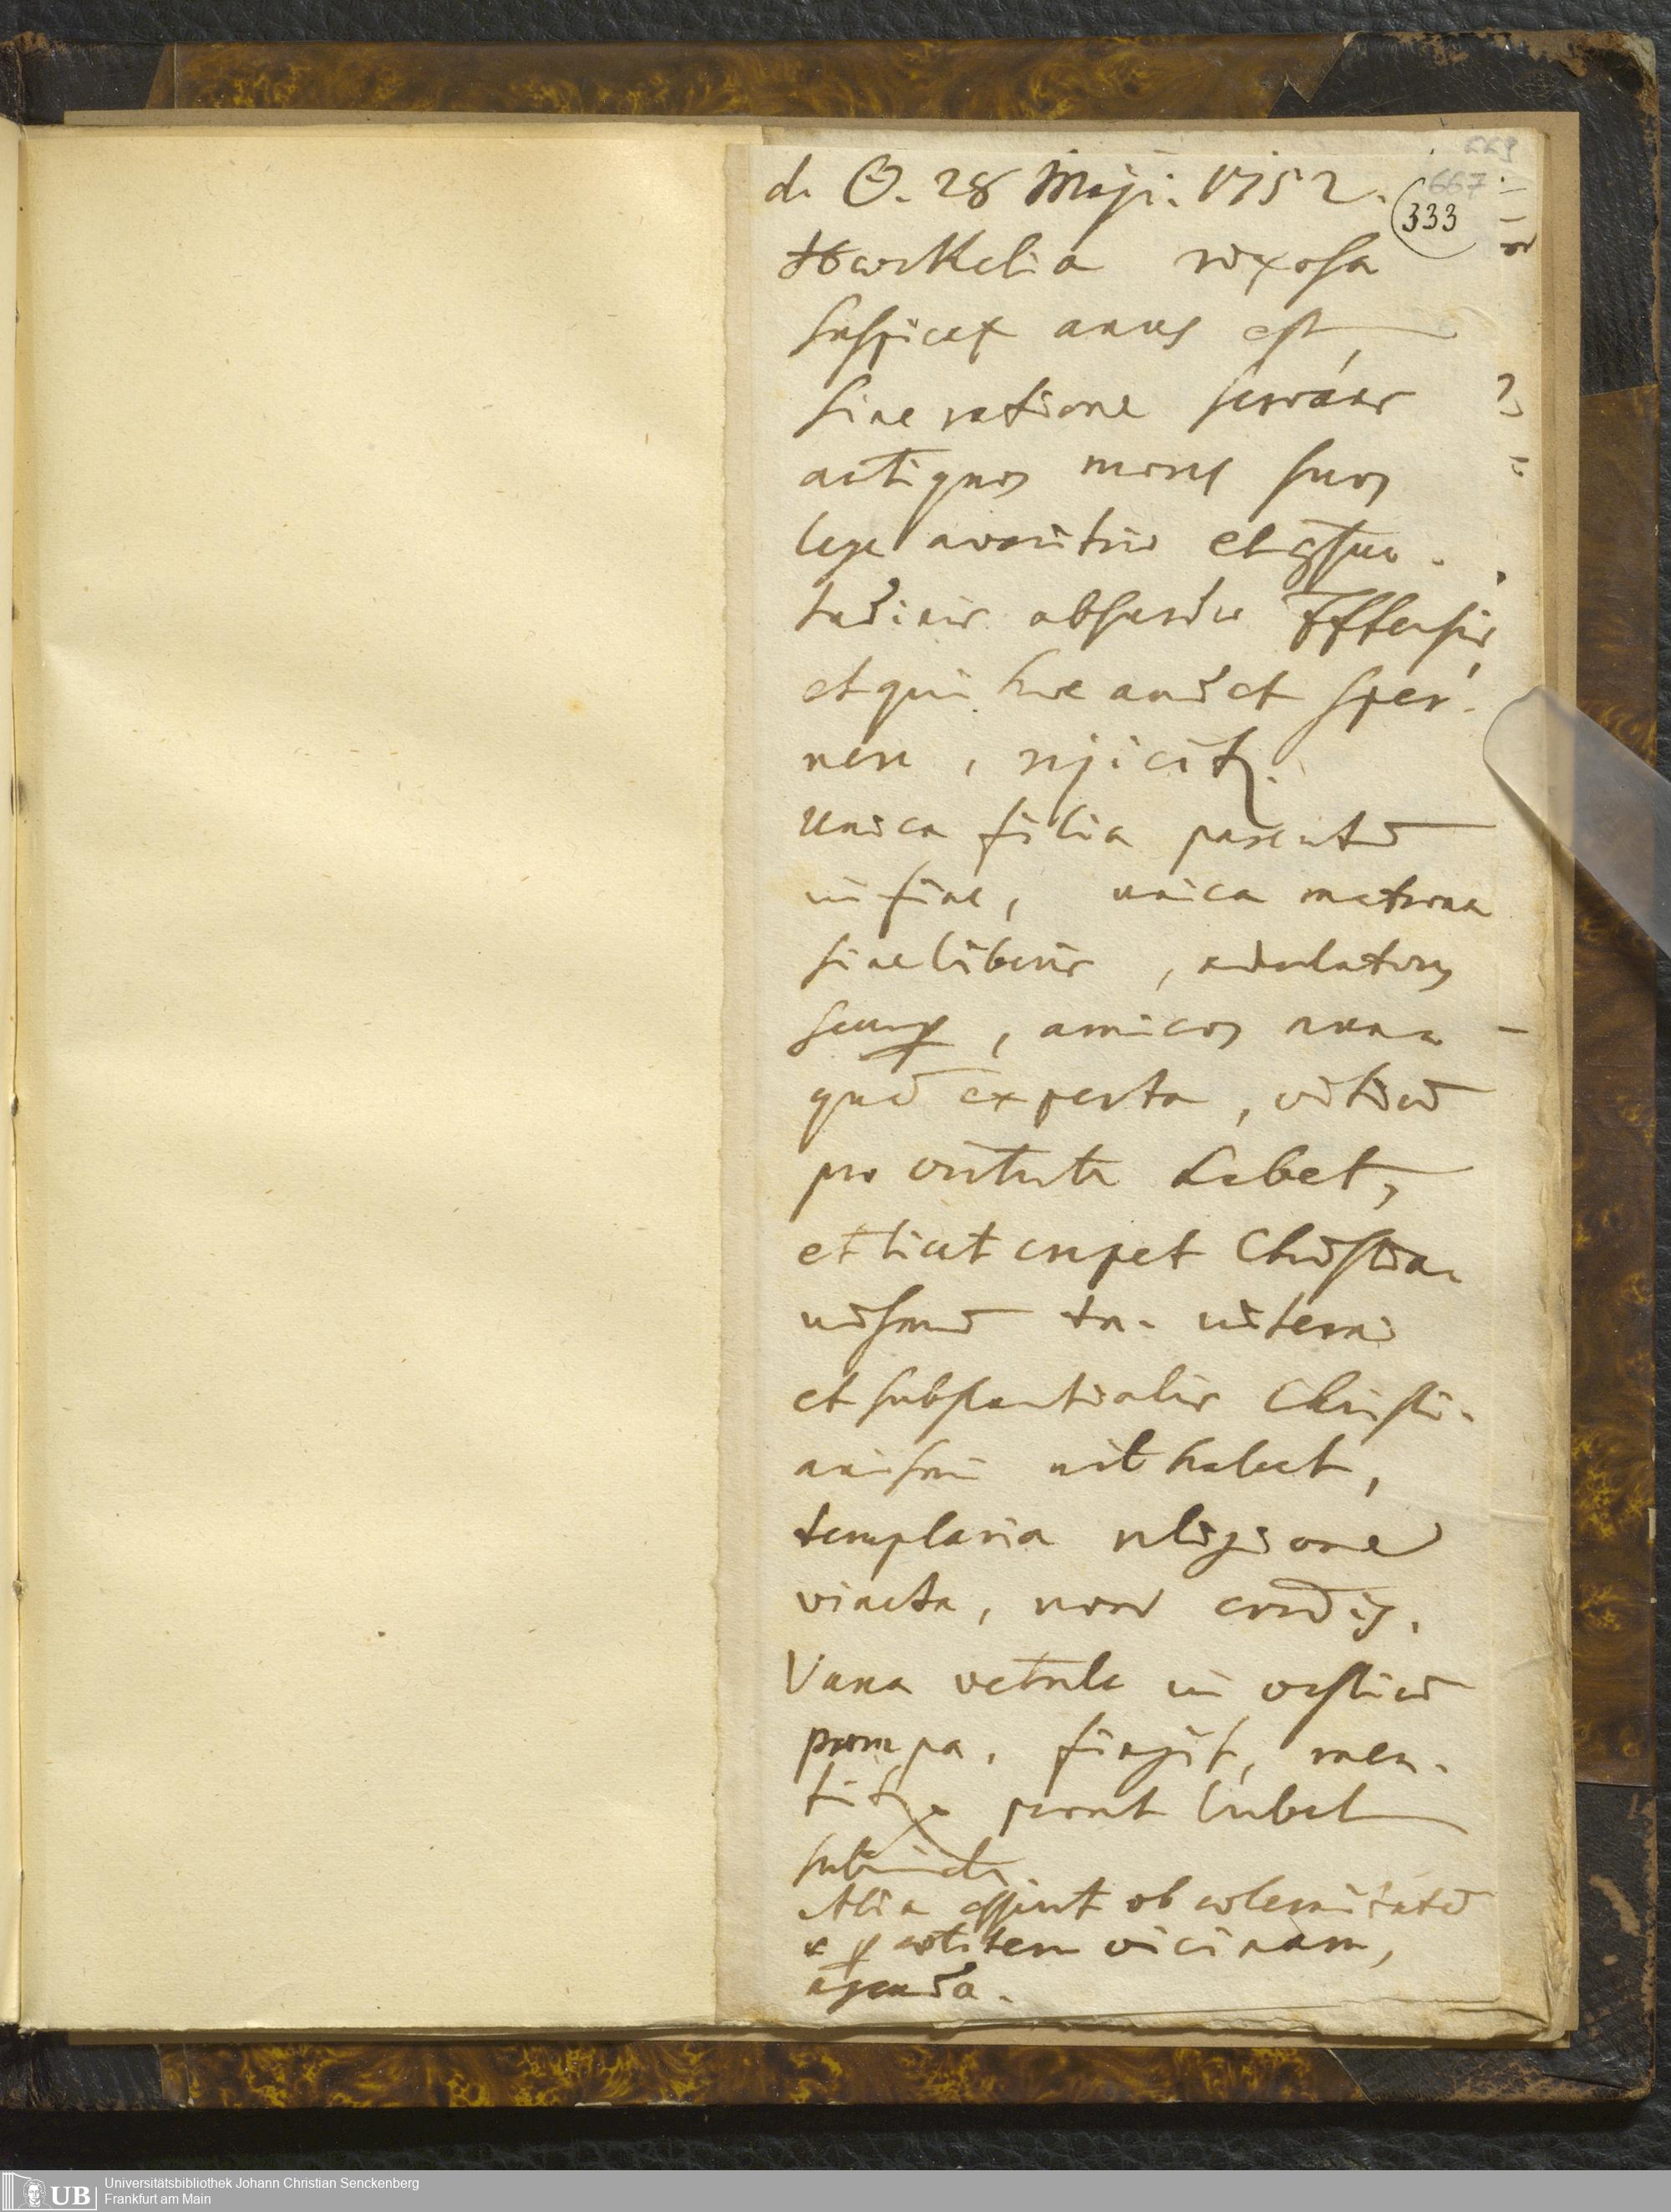 669
667
333
d. ☉. 28 Maji. 1752.
rixosa
suspicax anus est,
sine ratione servans
antiquos mores suos
lege avaritiae et consue-
tudinis absurdae
et qui hoc audet sper-
nere, rejicitur.
Unica filia parentum
in fine, unica matrona
sine liberis, adulatores
semper, amicos nun-
quam experta, vitium
pro virtute habet,
et licet crepet Christia-
nismum interni
et substantialis Christi-
anismi nil habeat,
templaria religione
vincta, non cordis.
Vana vetula in vestium
pompa, fingit, men-
titur prout lubet
subinde.
Alia ob
vicinam,
agenda.
UB
Universitätsbibliothek Johann Christian Senckenberg
Frankfurt am Main